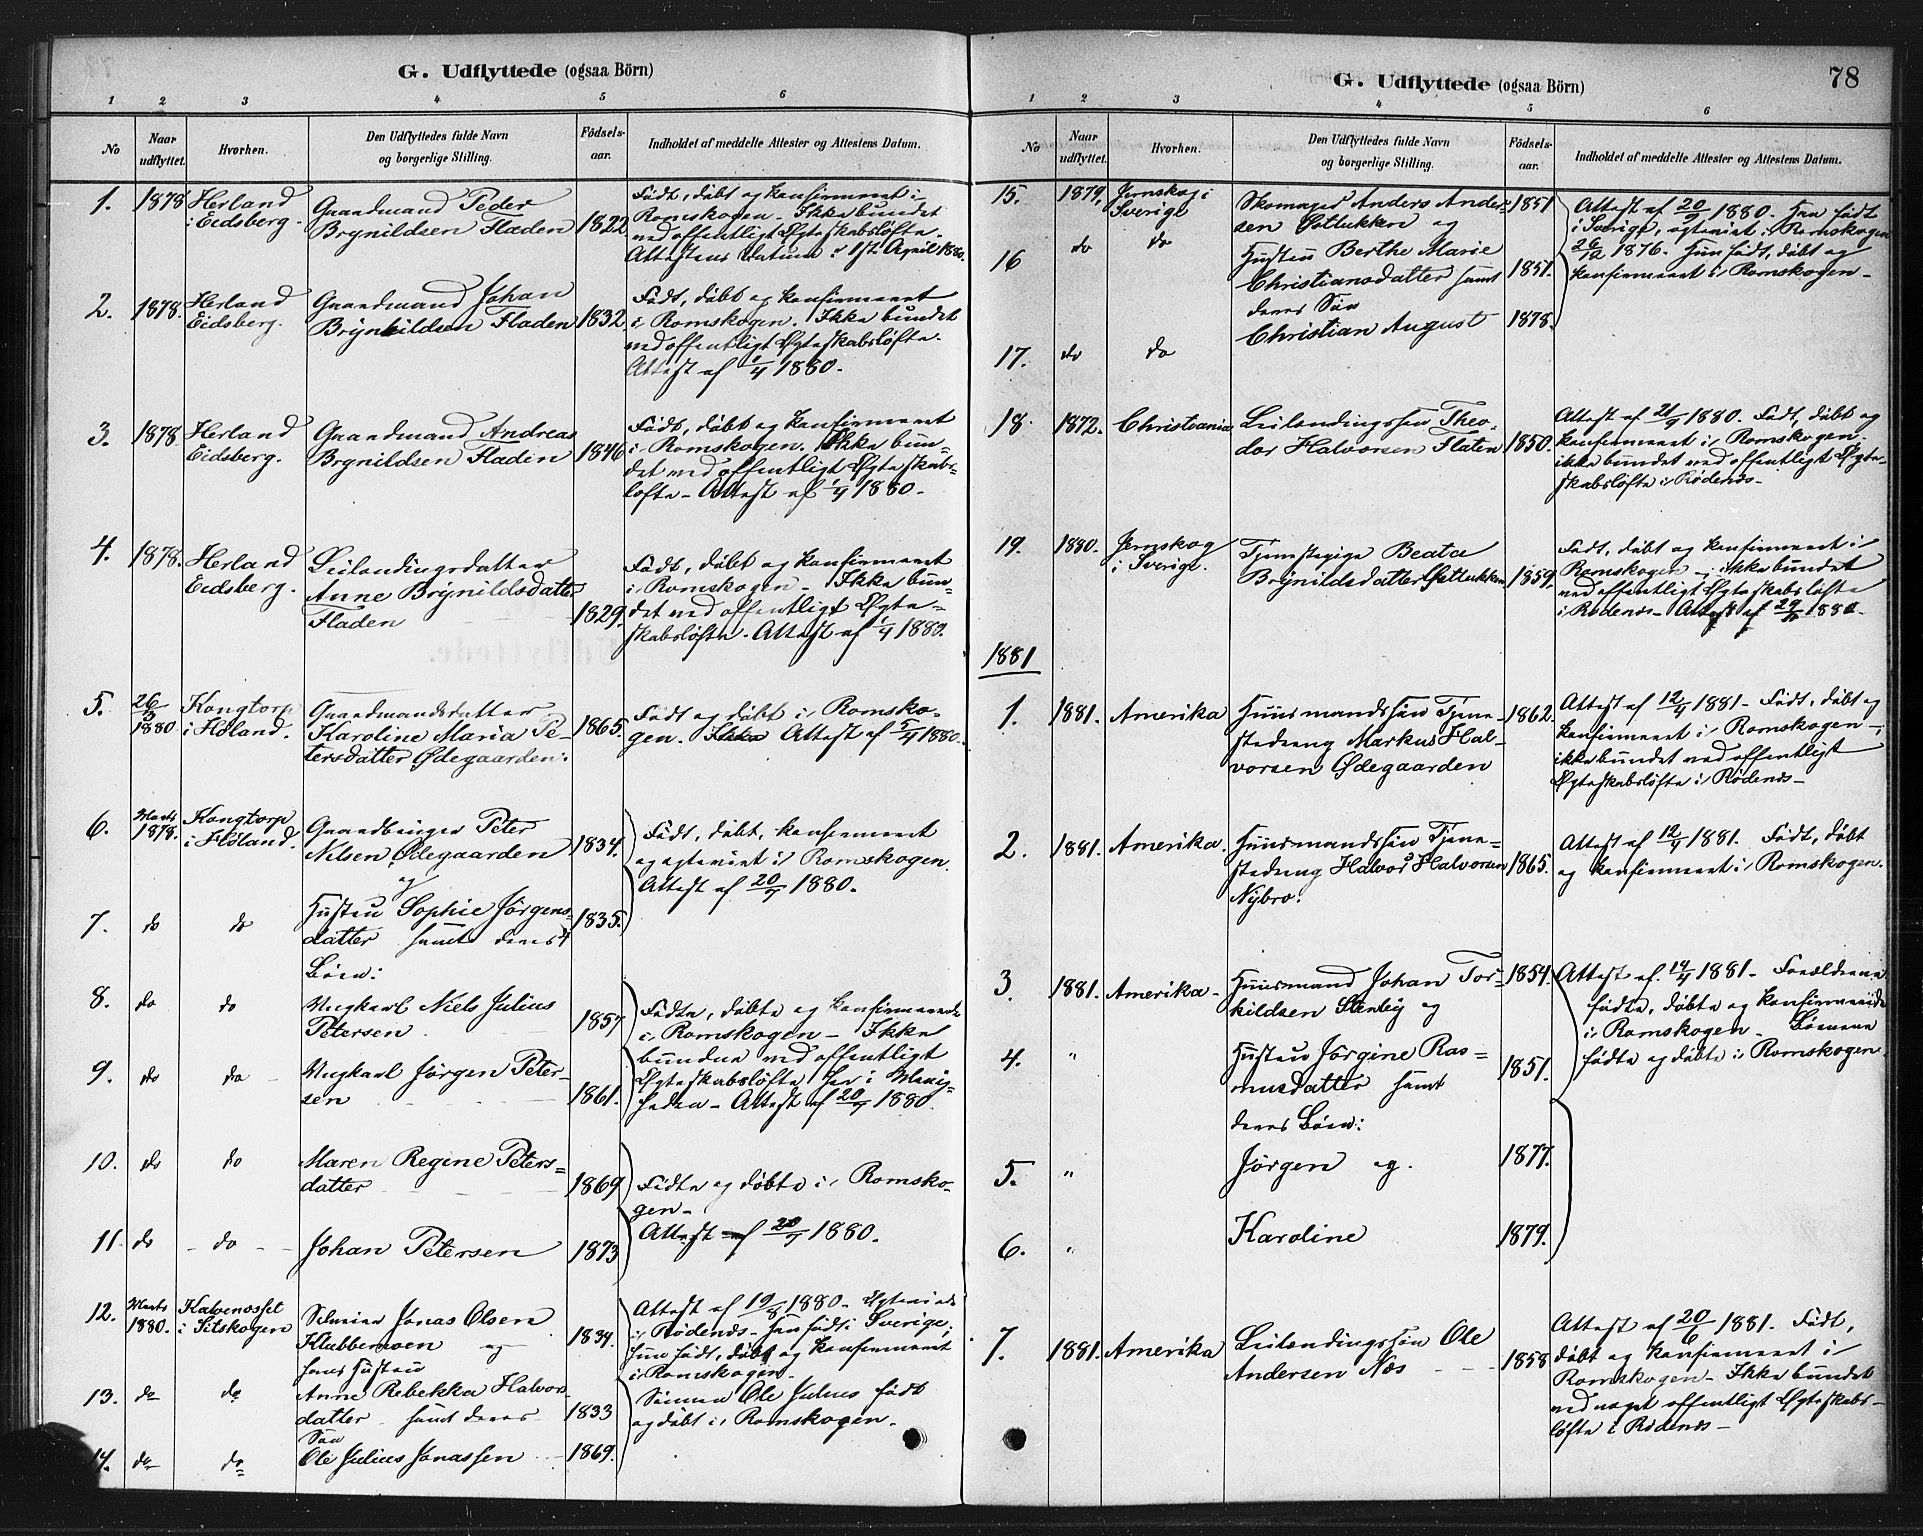 G. Udflyttede (ogsaa Börn)
1 2 3 4 5 6
No
Naar udflyttet.
Hvorhen.
Den Udflyttedes fulde Navn og borgerlige Stilling.
Födsels-aar.
Indholdet af meddelte Attester og Attestens Datum.
1. 1878 Herland i Eidsberg.
Gaardmand Peder
Brynildsen Fladen 1822
Født, døbt og konfirmeret i
Romskogen. Ikke bundet
ved offentligt Ægteskabsløfte.
Attestens Datum: 1st April 1880.
2. 1878. Herland Eidsberg.
Gaardmand Johan
Brynhildsen Fladen 1832
Født, døbt og konfirmeret
i Romskogen. Ikke bundet
ved offentligt Ægteskabsløfte.
Attest af 1/4 1880.
3. 1878 Herland Eidsberg.
Gaardmand Andreas
Brynildsen Fladen 1846
Født, døbt og konfirmeret
i Romskogen. Ikke bun-
det ved offentligt Ægteskabs-
løfte. Attest af 1/4 1880.
4. 1878. Herland Eidsberg.
Leilændingsdatter
Anne Brynildsdatter
Fladen 1829.
Født, døbt og konfirmeret
i Romskogen. Ikke bun-
det ved offentligt Ægte-
skabsløfte. Attest af 1/4 1880.
5. 26/3 1880 Kongtorp i Høland.
Gaardmandsdatter
Karoline Maria Pe-
tersdatter Ødegaarden. 1865.
Født og døbt i Romsko-
gen. Attest af 5/4 1880.
6. Marts 1878. Kongtorp i Høland.
Gaardbruger Peter
Nelsen Ødegaarden 1834.
og
Født, døbt, konfirmeret
og ægteviet i Romskogen.
Attest af 20/4 1880.
7. do do
Hustru Sophie Jørgens-
datter samt deres 1835.
Børn:
8. do do
Ungkarl Niels Julius
Petersen 1857
Fødte, døbte og konfirmerede
i Romskogen. Ikke
bundne ved offentligt
Ægteskabsløfte her i Menig-
heden. Attest af 20/4 1880.
9. do do
Ungkarl Jørgen Peter-
sen 1861.
10. do do
Maren Regine Peters-
datter 1869
Fødte og døbte i Romsko-
gen.
Attest af 20/4 1880.
11. do do
Johan Petersen 1873
12. Marts 1880. Kalvenosset i Sitskogen
Jonas Olsen
Klubbemoen og 1834.
hans Hustru
Attest af 19/8 1880. Ægteviede
i Rødenes. Han født i Sverige,
hun født, døbt og konfirmeret
i Romskogen.
13. do do
Anne Rebekka Halvors-
datter samt deres 1833
Søn
Sønnen Ole Julius født
og døbt i Romskogen.
14. do do
Ole Julius Jonassen 1869.
G. Udflyttede (ogsaa Börn) 78
1 2 3 4 5 6
No
Naar udflyttet.
Hvorhen.
Den Udflyttedes fulde Navn og borgerlige Stilling.
Födsels-aar.
Indholdet af meddelte Attester og Attestens Datum.
15. 1879, Jernskog i Sverige
Skomager Anders Ander-
sen og 1851
Attest af 20/9 1880. Han født
i Sverige, ægteviet i Romskogen
26/12 1876. Hun født, døbt og
konfirmeret i Romskogen.
16 do do
Hustru Berthe Marie
Christiansdatter samt 1851.
deres Søn
17. do do
Christian August 1878.
18. 1872. Christiania
Leilændingssøn Theo-
dor Halvorsen Flaten 1850.
Attest af 21/9 1880. Født, døbt og
konfirmeret i Romskogen.
ikke bundet ved offentligt Ægte-
skabsløfte i Rødenes.
19. 1880. Jernskog i Sverige.
Tjenestepige Beata
Brynildsdatter 1859.
Født, døbt og konfirmeret i
Romskogen; ikke bundet
ved offentligt Ægteskabsløfte
i Rødenes. Attest af
1881
1. 1881. Amerika
Huusmandssøn Tjene-
stedreng Markus Hal-
vorsen Ødegaarden 1862.
Attest af 12/4 1881. Født, døbt og
konfirmeret i Romskogen;
ikke bundet ved offentligt
Ægteskabsløfte i Rødenes.
2. 1881. Amerika.
Huusmandssøn Tjene-
stedreng Halvor Halvorsen
Nybro. 1865.
Attest af 12/4 1881. Født, døbt
og konfirmeret i Romskogen.
3. 1881. Amerika.
Huusmand Johan Tor-
kildsen Stenby og 1854.
Attest af 14/4 1881. Forældrene
fødte, døbte og konfirmerede
i Romskogen. Børnene
fødte og døbte i Romskogen.
4. "
Hustru Jørgine Ras-
musdatter samt 1851.
deres Børn:
5. "
Jørgen og 1877.
6. "
Karoline 1879.
7. 1881. Amerika
Leilændingssøn Ole
Andersen Næs 1858
Attest af 20/6 1881. Født,
døbt og konfirmeret i
Romskogen. Ikke bundet
ved noget offentligt Ægteskabs-
løfte i Rødenes.